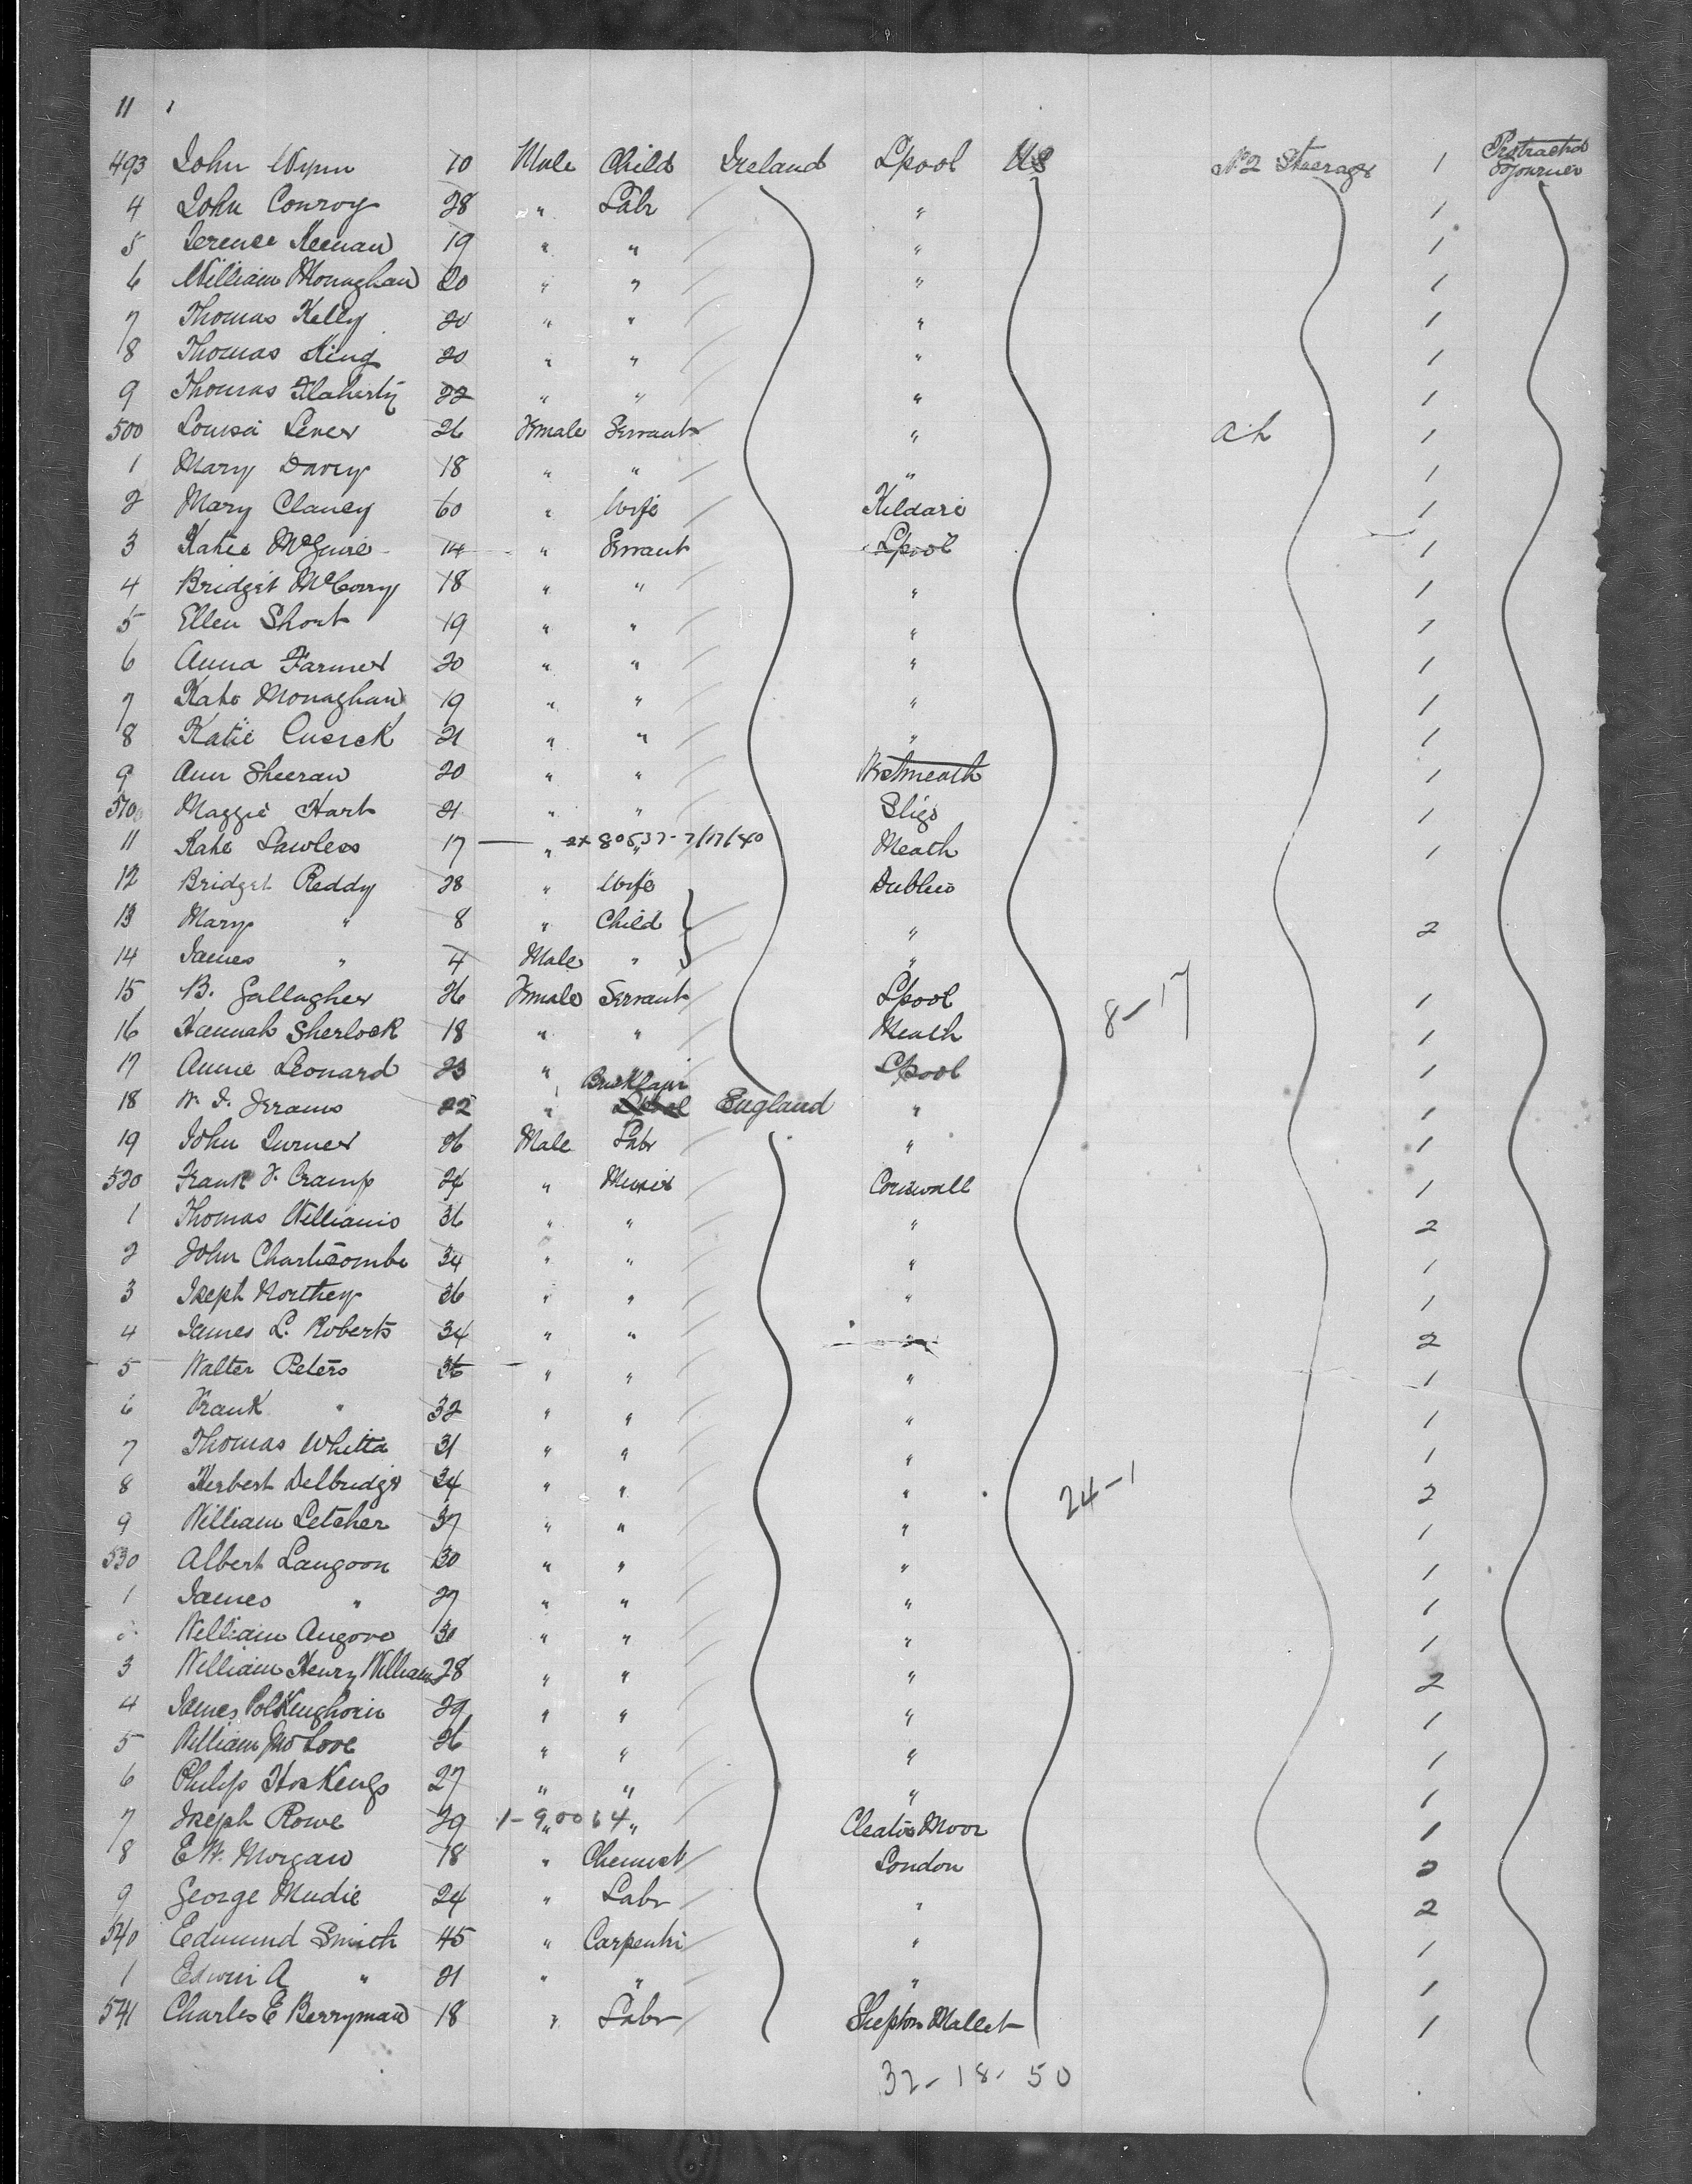 11
493 John Wynn 10 Male Child Ireland Lpool US No 2 Steerage 1 Protracted Sojourner
4 John Conroy 28 " Labr " 1
5 Terence Keenan 19 " " " 1
6 William Monaghan 20 " " " 1
7 Thomas Kelly 20 " " " 1
8 Thomas King 20 " " " 1
9 Thomas Flaherty 22 " " " 1
500 Louisa Lener 26 Female Servant " 1
1 Mary Davey 18 " " " 1
2 Mary Clancy 60 " Wife Kildare 1
3 Katie McGuire 14 " Servant Lpool 1
4 Bridget McCorry 18 " " " 1
5 Ellen Short 19 " " " 1
6 Anna Farmer 20 " " " 1
7 Kate Monaghan 19 " " " 1
8 Katie Cusick 21 " " " 1
9 Ann Sheeran 20 " " Westmeath 1
510 Maggie Hart 21 " " Sligo 1
11 Kate Lawless 17 " 2x 80537-7/17/40 " Meath 1
12 Bridget Reddy 28 " Wife Dublin
13 Mary " 8 " Child " 2
14 James " 4 Male " "
15 B. Gallagher 26 Female Servant Lpool 8-17 1
16 Hannah Sherlock 18 " " Meath 1
17 Annie Leonard 23 " Lpool 1
18 W. J. Jerams 22 " England " 1
19 John Turner 26 Male Labr " 1
520 Frank J. Cramp 24 " Miner Cornwall 1
1 Thomas Williams 36 " " " 2
2 John Charlicombe 34 " " " 1
3 Joseph Northey 26 " " " 1
4 James L. Roberts 34 " " " 2
5 Walter Peters 36 " " " 1
6 Frank " 32 " " " 1
7 Thomas Whitta 31 " " " 1
8 Herbert Delbridge 34 " " " 24-1 2
9 William Letcher 37 " " " 1
530 Albert Langoon 30 " " " 1
1 James " 27 " " " 1
2 William Angove 30 " " " 1
3 William Henry Williams 28 " " " 2
4 James Polkinghorn 29 " " " 1
5 William Jno Love 26 " " " 1
6 Philip Hoskings 27 " " " 1
7 Joseph Rowe 29 1-90064 " " Cleator Moor 1
8 E W. Morgan 18 " Chemist London 2
9 George Mudie 24 " Labr " 2
540 Edmund Smith 45 " Carpenter " 1
1 Edwin A " 21 " " " 1
541 Charles E Berryman 18 " Labr Shepton Mallet 1
32-18-50